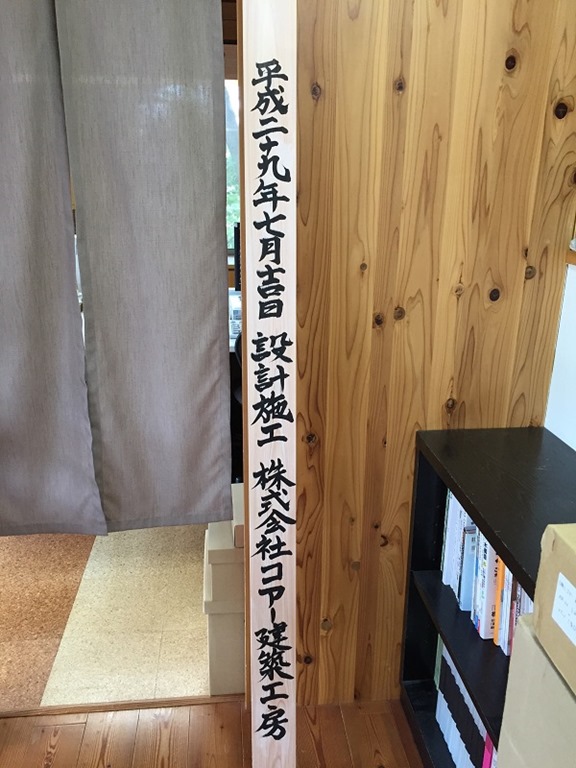 平成二十九年七月吉日 設計施工 株式会社コアー建築工房